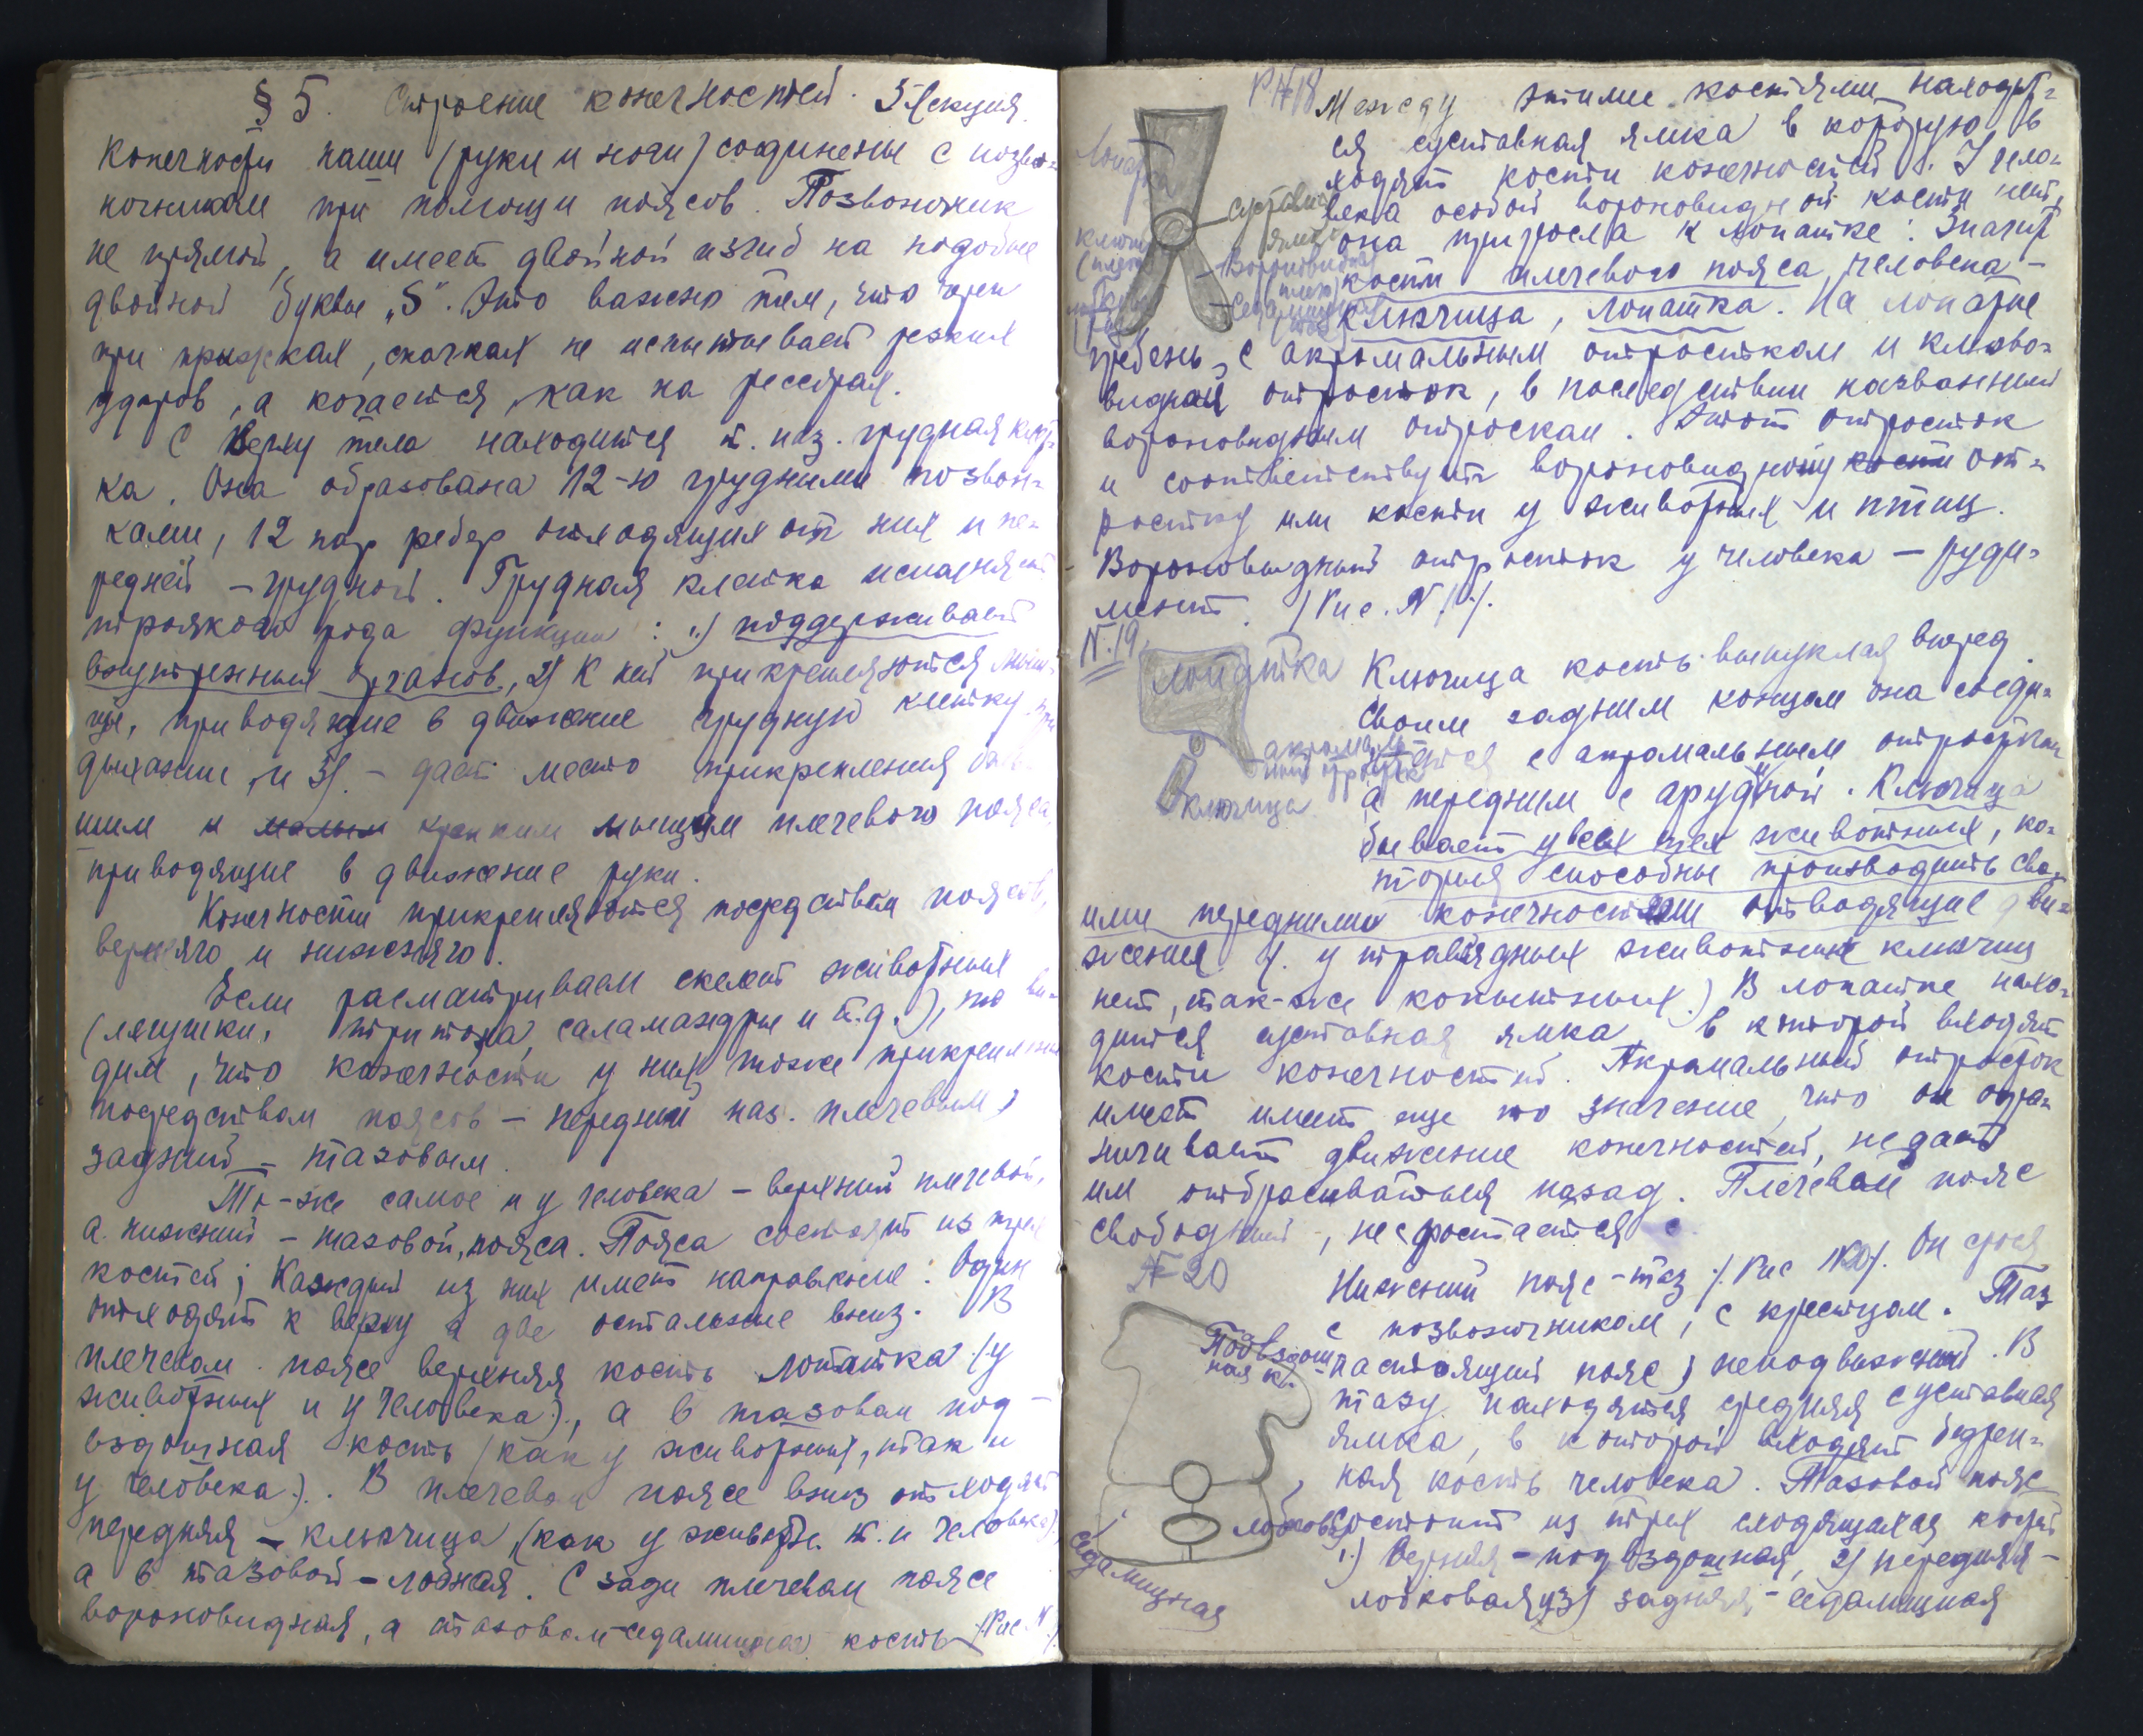 § 5. Строение конечностей. 3 лекция.
Конечности наши (руки и ноги) соединены с позво-
ночником при помощи поясов. Позвоночник
не прямой, а имеет двойной изгиб на подобие
двойной буквы „S“. Это важно тем, что
при прыжках, скачках не испытывает резких
ударов, а качается, как на рессорах.
С верху тела находится т. наз. грудная клет-
ка. Она образована 12-ю грудными позвон-
ками, 12 пар ребер отходящих от них и пе-
редней - грудной. Грудная клетка исполняет
троякого рода функции: 1) поддерживает
внутренних органов, 2) К ней прикрепляются мыш-
цы, приводящие в движение грудную клетку при
дыхании, и 3). - дает место прикрепления боль-
шим и малым крепким мышцам плечевого пояса,
приводящие в движение руки.
Конечности прикрепляются посредством поясов,
верхняго и нижняго.
Если рассматриваем скелет животных
(лягушки, тритона, саламандры и т.д.), то ви-
дим, что конечности у них тоже прикреплены
посредством поясов - передний наз. плечевым,
задний - тазовым.
То-же самое и у человека - верхний плечевой,
а нижний - тазовой, пояса. Пояса состоят из трех
костей; Каждый из них имеет направление: Один
отходят к верху а две остальные вниз. В
плечевом поясе верхняя кость лопатка (у
животных и у человека), а в тазовом под-
вздошная кость (как у животных, так и
у человека). В плечевом поясе вниз отходят
передняя - ключица, (как у животн. т. и человека),
а в тазовой - лобная. С зади плечевом поясе
вороновидная, а тазовом седалищная кость (Рис. N ).
Р N 18
Между этими костями находит-
ся суставная ямка в которую в
ходят кости конечностей. У чело-
века особой вороновидной кости нет,
она приросла к лопатке. Значит
кости плечевого пояса человека -
ключица, лопатка. На лопатке
гребень, с акромальным отростком и клюво-
видный отросток, в последствии названный
вороновидным отроском. Этот отросток
и соответствует вороновидному кости от-
ростку или кости у животных и птиц.
Вороновидный отросток у человека - руди-
мент. (Рис. N ).
Лопатка
Суставная
ямка
Вороновидная
(плечо)
N. 19.
лопатка
акромаль-
ный отросток
ключица
Ключица кость выпуклая вперед
своим задним концом она соеди-
няется с акромальным отростком
а передним с грудной. Ключица
бывает у всех тех животных, ко-
торыя способны производить сво-
ими передними конечностями отводящие дви-
жения (. у травоядных животных ключиц
нет, так-же копытных.) В лопатке нахо-
дится суставная ямка, в которой входят
кости конечностей. Акромальный отросток
имеет имеет еще то значение, что он огра-
ничивает движение конечностей, не дает
им отбрасываться назад. Плечевой пояс
свободный, не сростается с
N 20
Подвздош-
ная к.
лобковая
седалищная
Нижний пояс - таз (. Рис N20). Он сросся
с позвоночником, с крестцом. Таз
настоящий пояс, неподвижный. В
тазу находятся средняя суставная
ямка, в которой входят бедрен-
ная кость человека. Тазовой пояс
состоит из трех сходящихся костей
1.) верхняя - подвздошная, 2) передняя -
лобковая, и 3) задняя - седалищная